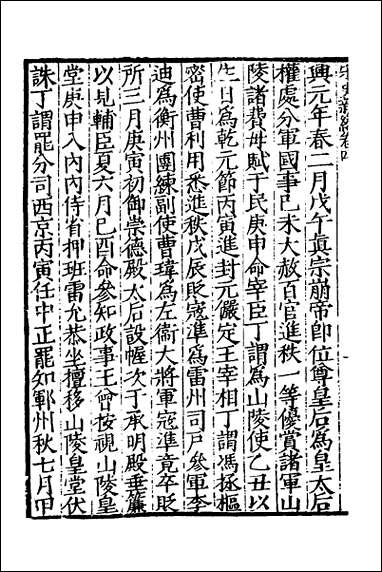 興元年春二月戊午眞宗崩帝卽位尊皇后爲皇太后
權處分軍國事己未大赦百官進秩一等優賞諸軍山
陵諸費毋賦于民庚申命宰臣丁謂爲山陵使乙丑以
生日爲乾元節丙寅進封元儼定王宰相丁謂馮拯樞
密使曹利用悉進秩戊辰貶寇準爲雷州司戶參軍李
迪爲衡州團練副使曹瑋爲左衞大將軍寇準竟卒貶
所三月庚寅初御崇德殿太后設幄次于承明殿垂簾
以見輔臣夏六月己酉命參知政事王曾按視山陵皇
堂庚申入內內侍省押班雷允恭坐擅移山陵皇堂伏
誅丁謂罷分司西京丙寅任中正罷知鄆州秋七月甲